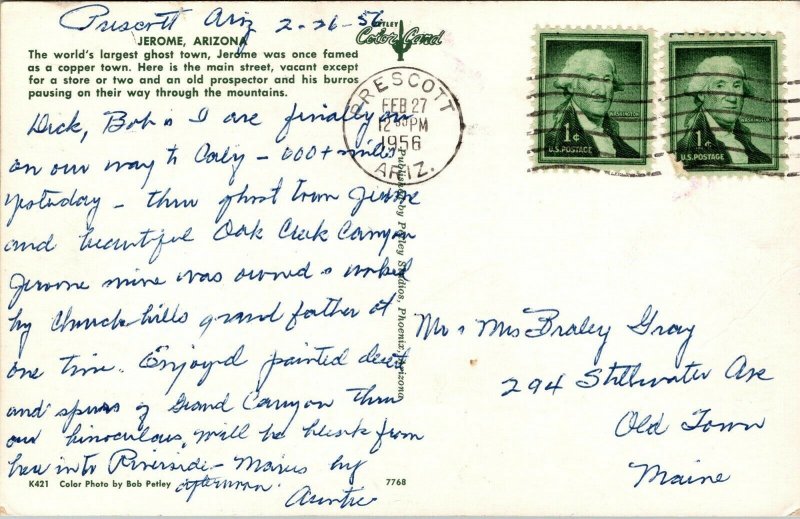 Prescott Ariz 2-26-56
JEROME, ARIZONA
PETLEY
Color Card
The world's largest ghost town, Jerome was once famed
as a copper town. Here is the main street, vacant except
for a store or two and an old prospector and his burros
pausing on their way through the mountains.
PRESCOTT
FEB 27
12 PM
1956
ARIZ.
1¢
WASHINGTON
U.S. POSTAGE
1¢
WASHINGTON
U.S. POSTAGE
Dick, Bob & I are finally
on our way to Caly - 000+ miles
yestuday - thru ghost town Jerome
and beautiful Oak Creek Canyon
Jerome mine was owned & worked
by Churchills grand father at
one time. Enjoyed painted desert
and spurs of Grand Canyon thru
our binoculous. Will be from
here into Riverside - by
afternoon.
Auntie
Published by Petley Studios, Phoenix, Arizona
Mr & Mrs Braley Gray
294 Stillwater Ave
Old Town
Maine
K421 Color Photo by Bob Petley
7768